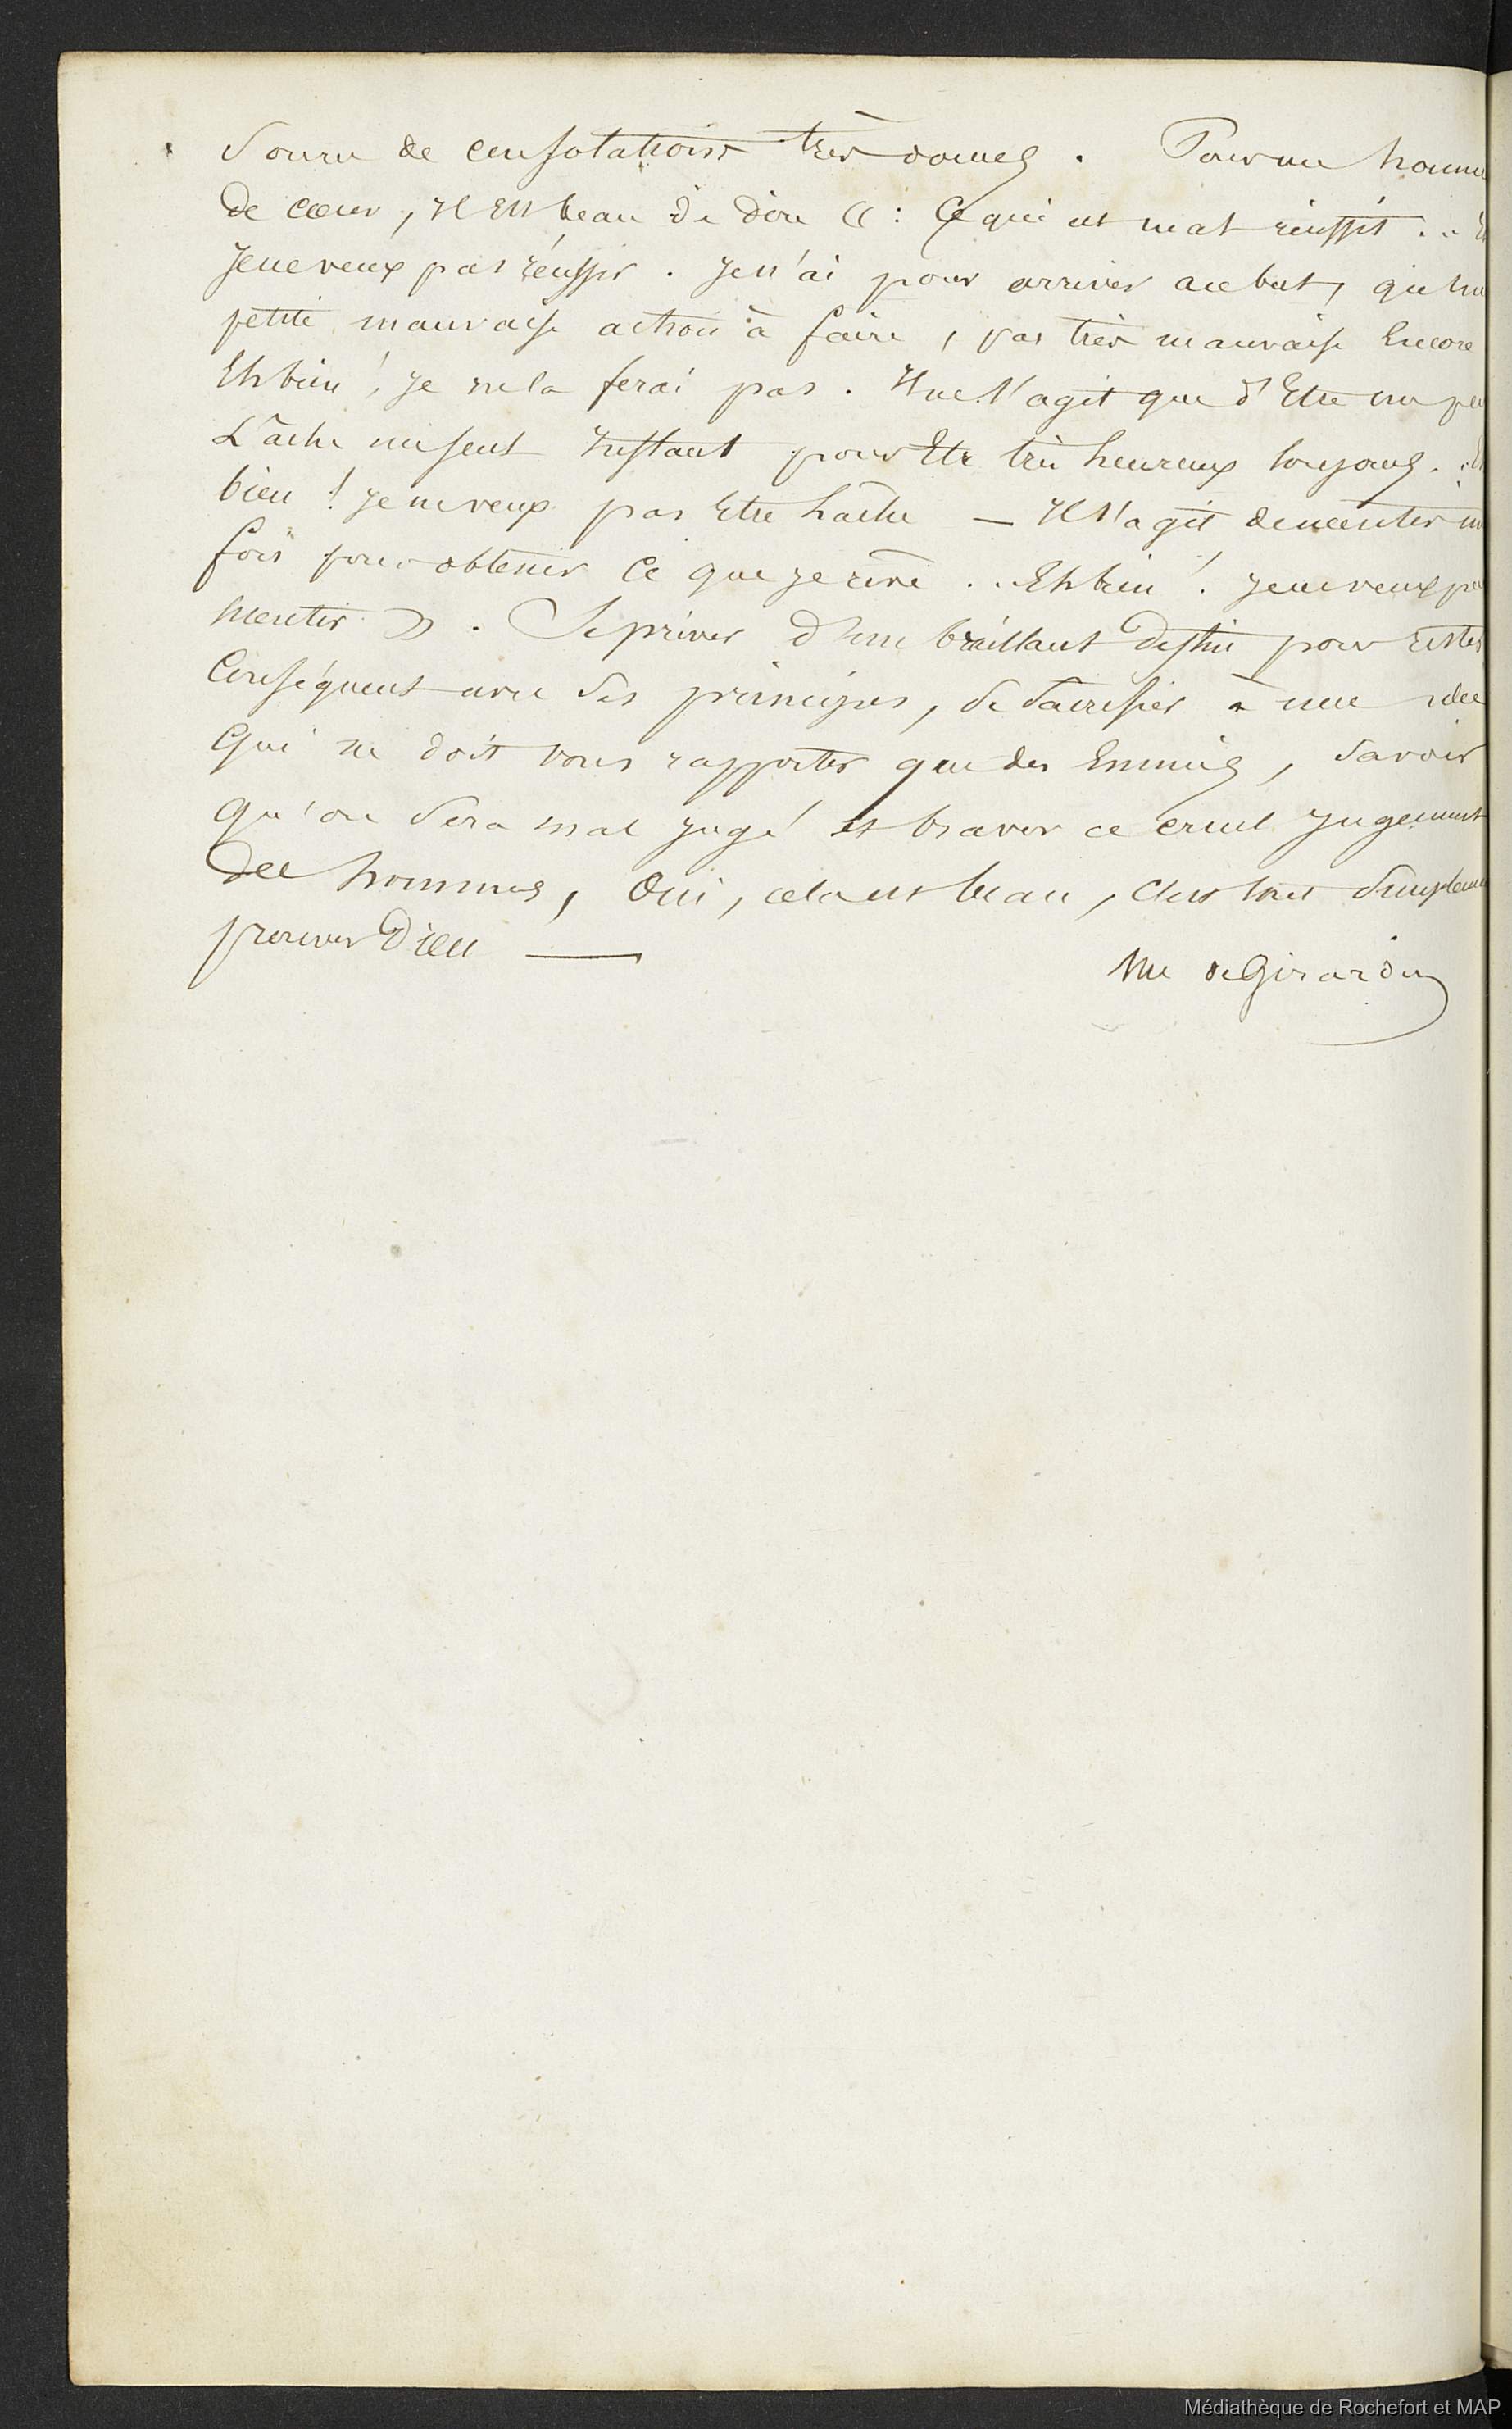 Source de consolations très douces. Pour un homme
de cœur, il est beau de dire « : Ce qui est mal réussit... Eh
je ne veux pas réussir. Je n'ai pour arriver à ce but, qu'une
petite mauvaise action à faire, pas très mauvaise Encore
Eh bien ! je ne la ferai pas. Il ne s'agit que d'Etre un peu
Lâche un seul Instant pour Etre très heureux toujours... Eh
bien ! je ne veux pas Etre Lâche — Il s'agit de mentir une
fois pour obtenir Ce que je rêve... Eh bien ! je ne veux pas
Mentir ». Se priver d'un brillant Destin pour rester
Conséquent avec Ses principes, se Sacrifier à une idée
Qui ne doit vous rapporter que des Ennuis, Savoir
Qu'on Sera mal jugé et braver ce cruel Jugement
Des hommes, Oui, cela est beau, C'est tout Simplement
prouver Dieu —
Me de Girardin
Médiathèque de Rochefort et MAP